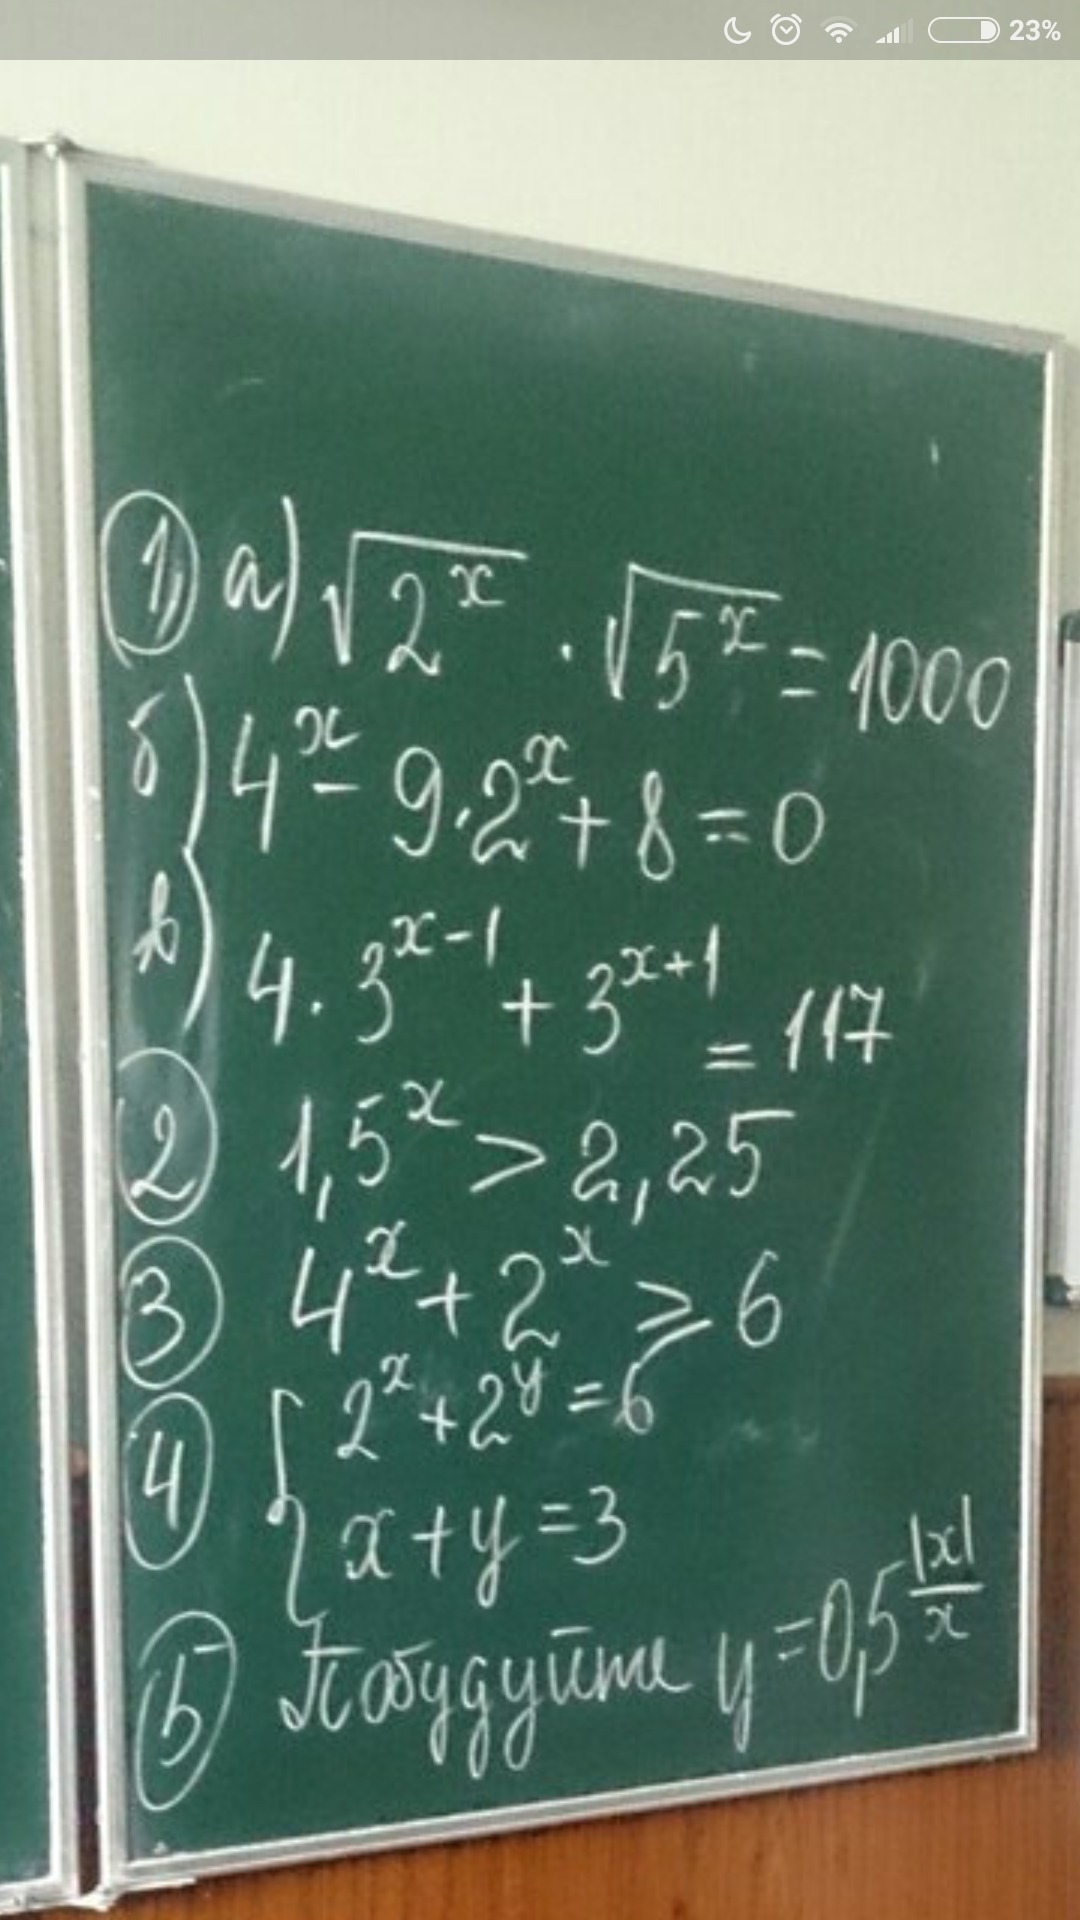 23%
1) а) √2^x · √5^x = 1000
б) 4^x - 9·2^x + 8 = 0
в) 4·3^(x-1) + 3^(x+1) = 117
2 1,5^x > 2,25
3 4^x + 2^x ⩾ 6
4 { 2^x + 2^y = 6
x + y = 3
5 Побудуйте y = 0,5^(|x|/x)